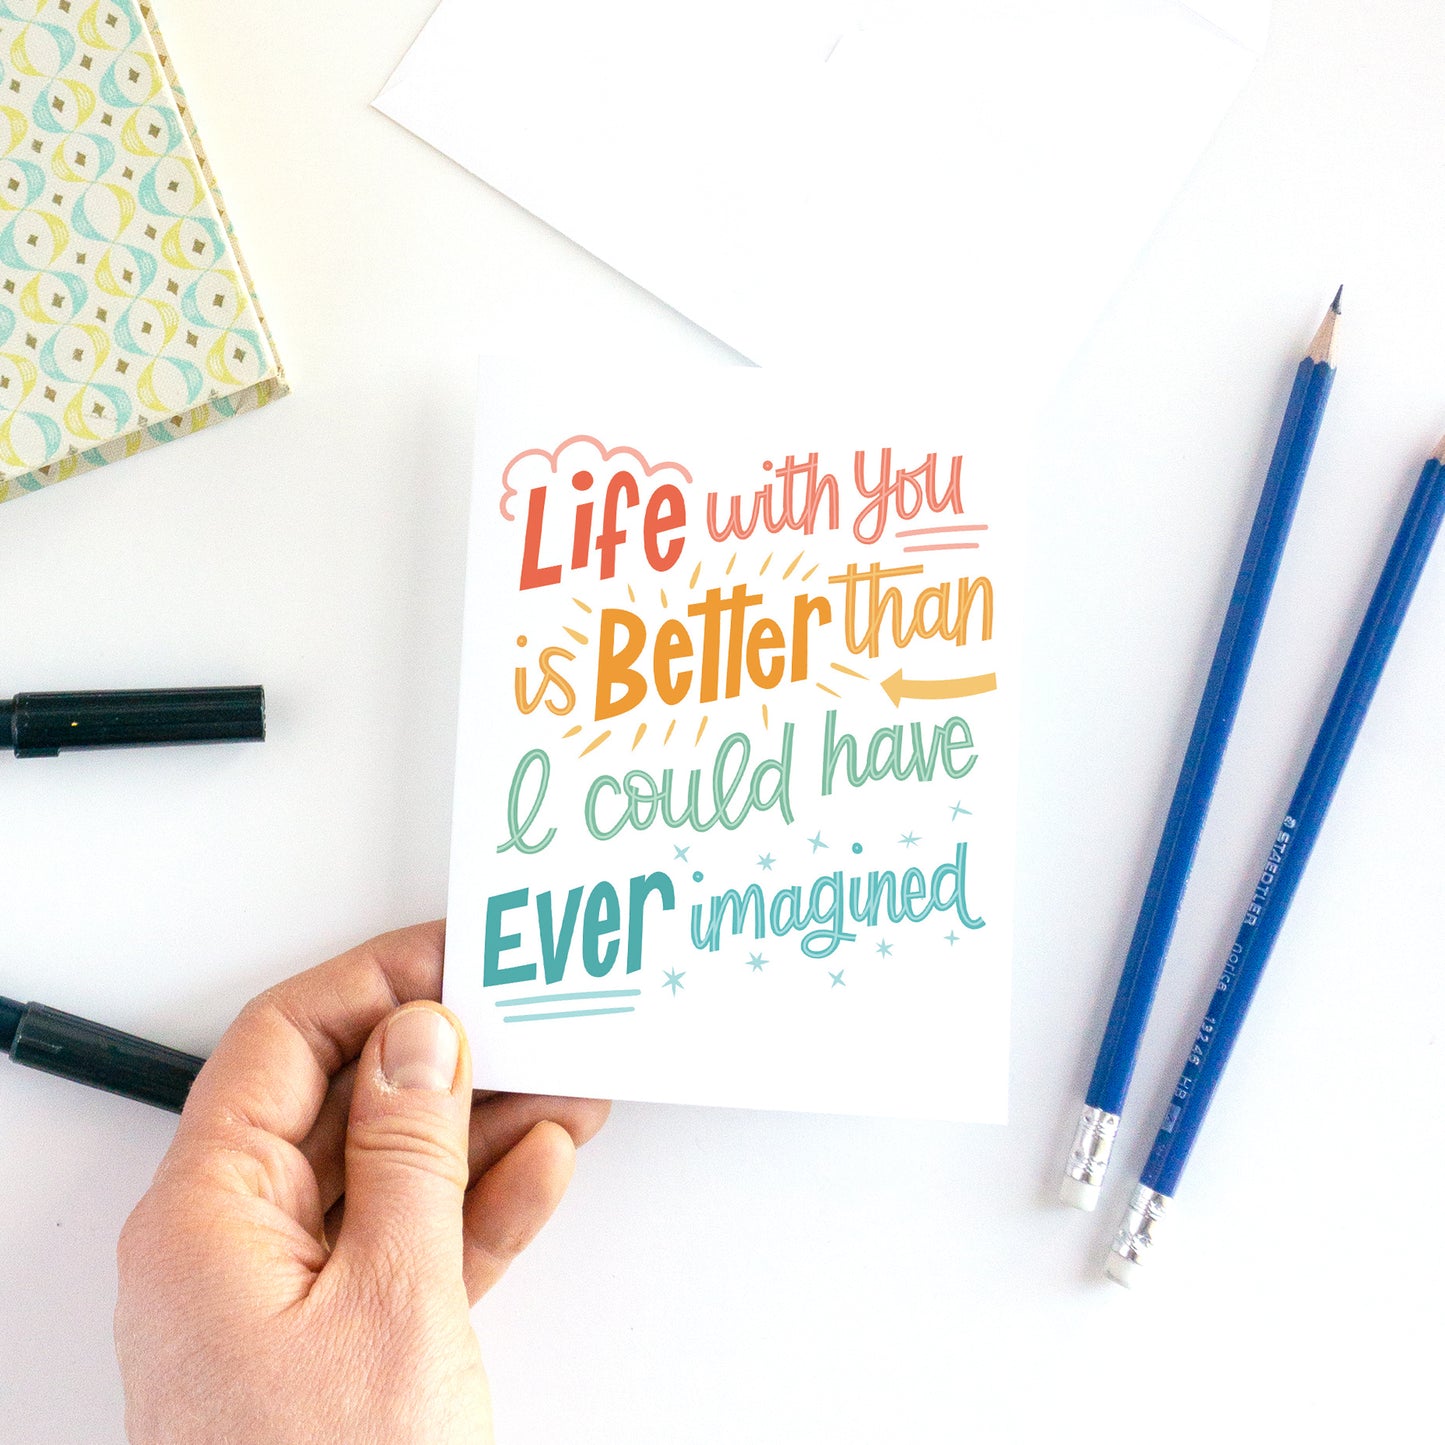 Life with you
is Better than
I could have
Ever imagined
STAEDTLER norica 132 46 HB